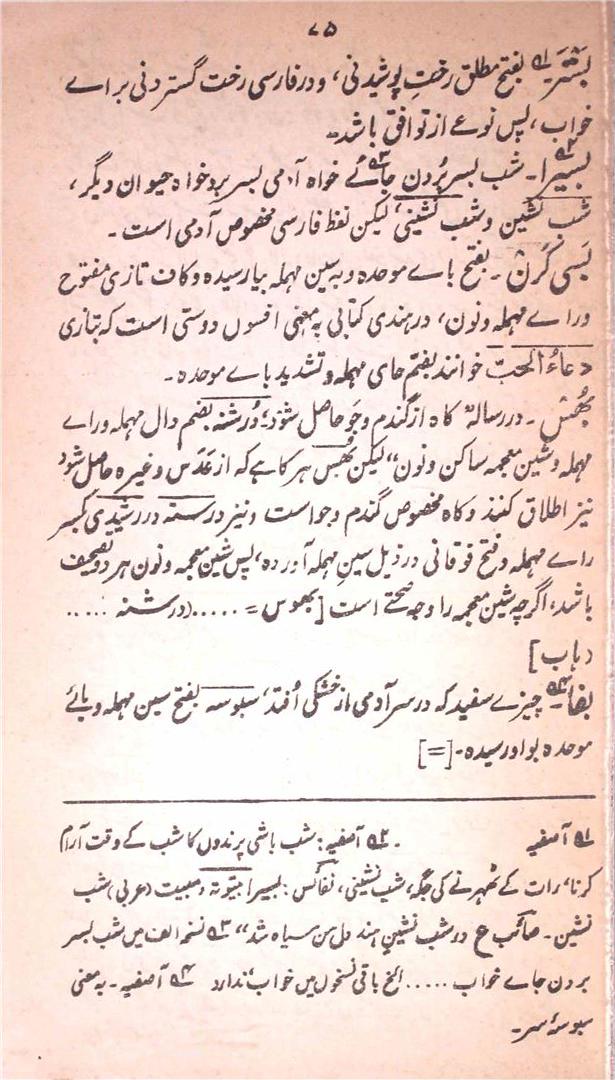 ۷۵
بستر۔ ۱؎ بفتح مطلق رخت پوشیدنی، و در فارسی رخت گستردنی براے
خواب، پس نوعے از توافق باشد۔
بسیرا۔ ۲؎ شب بسر بُردن جائے ۳؎ خواہ آدمی بسر برد خواہ حیوان دیگر،
شب نشین و شب نشینی، لیکن لفظ فارسی مخصوص آدمی است۔
بَسی کَرَن۔ بفتح باے موحدہ و بہ سین مہملہ بیا رسیدہ و کاف تازی مفتوح
و راے مہملہ و نون، در ہندی کتابی بہ معنی افسون دوستی است کہ بتازی
دعاءُ الحُبّ خوانند بضم حاے مہملہ و تشدید باے موحدہ۔
بھُس۔ در رسالہ "کاہ از گندم و جَو حاصل شود؛ دُرشنہ بضم دال مہملہ و راے
مہملہ و شین معجمہ ساکن و نون" لیکن بھُس ہر کاہے کہ از عدس و غیرہ حاصل شود
نیز اطلاق کنند و کاہ مخصوص گندم و جو است و نیز درستہ در رشیدی بکسر
راے مہملہ و فتح فوقانی در ذیل سین مہملہ آوردہ، پس شین معجمہ و نون ہر دو تصحیف
باشد، اگرچہ شین معجمہ را وجہ صحتے است [بھوس = ..... (درشنہ .....
دباب]
بفا۔ ۴؎ چیزے سفید کہ در سر آدمی از خشکی اُفتد، سبوسہ بفتح سین مہملہ و بائے
موحدہ بواو رسیدہ۔ [=]
۱؎ آصفیہ ۔ ۲؎ آصفیہ: شب باشی پرندوں کا شب کے وقت آرام
کرنا، رات کے ٹھہرنے کی جگہ، شب نشینی، نفائس: بسیرا بیتوتہ و مبیت (عربی) شب
نشین۔ صائب ع در شب نشینِ ہند دل من سیاہ شد" ۳؎ نسخہ الف میں شب بسر
بردن جاے خواب ..... الخ باقی نسخوں میں خواب ندارد ۴؎ آصفیہ۔ بہ معنی
سبوسۂ سر۔